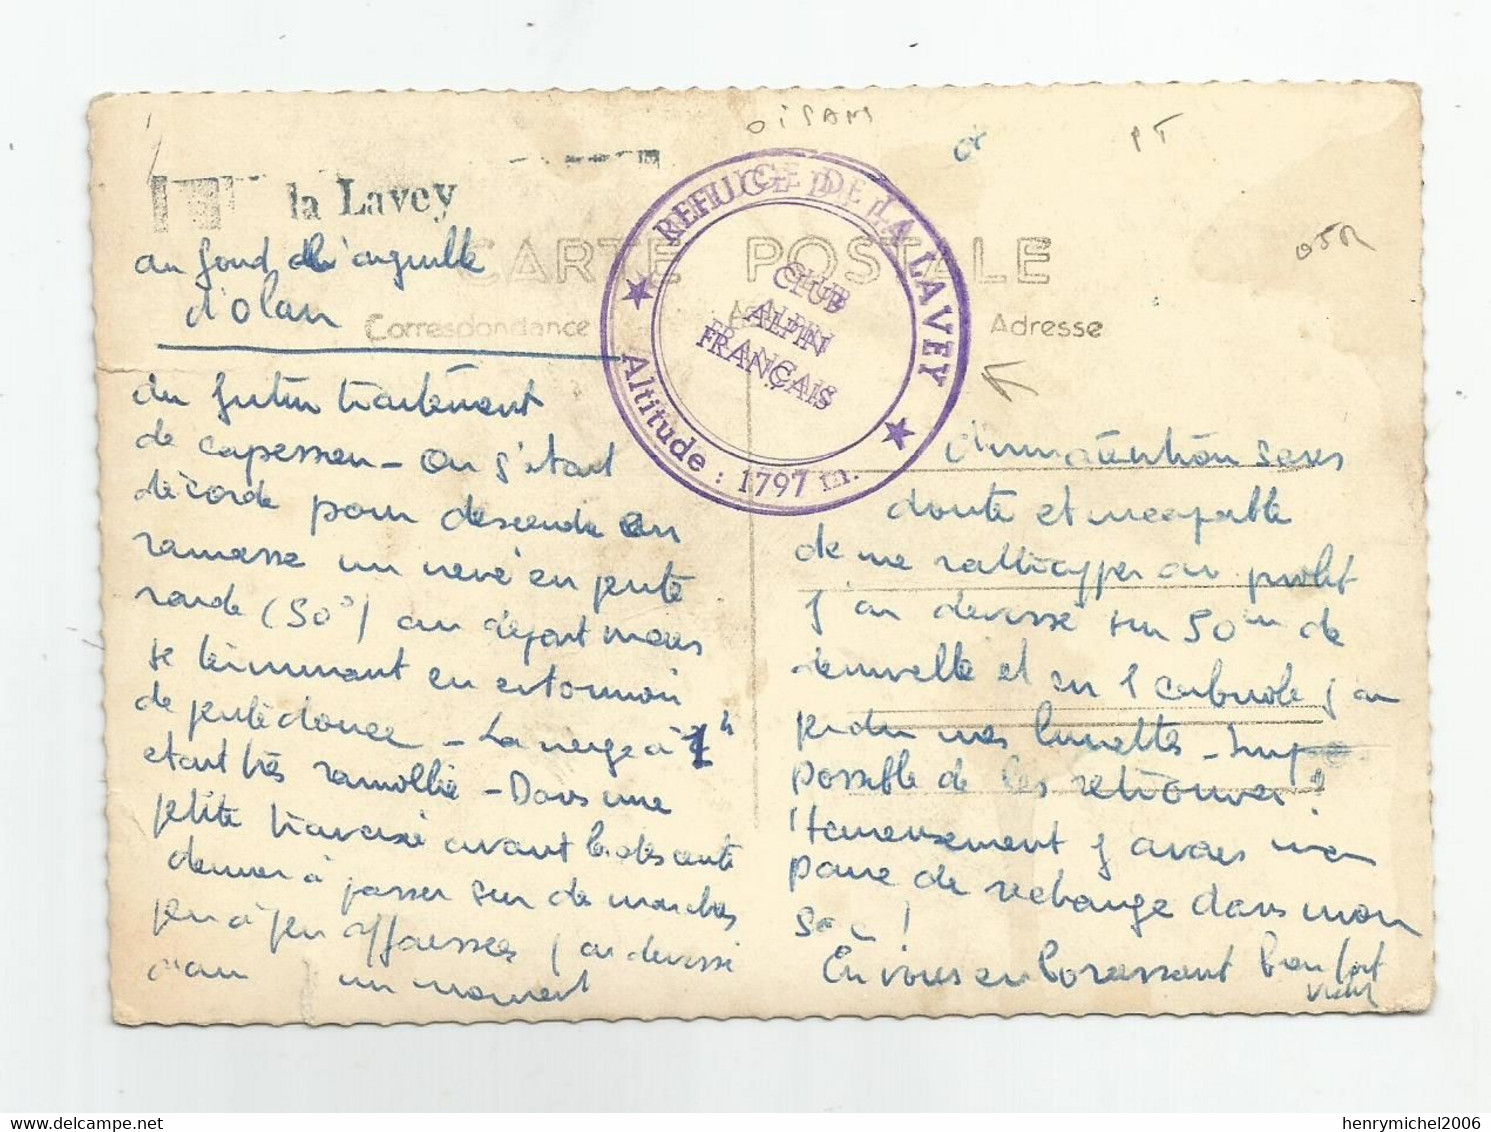 OISANS
PT
05R
la Lavey
REFUGE DE LA LAVEY
CLUB
ALPIN
FRANÇAIS
Altitude : 1797 m.
CARTE POSTALE
Correspondance
Adresse
au fond de l'aiguille
d'olan
de
On s'était
décordé pour descendre en
ramasse un névé en pente
raide (50°) au départ mais
se terminant en entonnoir
de pente douce - La neige à 1h
étant très ramollie - Dans une
petite traversée avant la descente
à passer sur des marches
peu à peu affaissées j'ai dévissé
un moment
d'inattention sans
doute et incapable
de me rattraper au piolet
j'ai dévissé sur 50 m de
dénivellé et en 1 cabriole j'ai
perdu mes lunettes - Im
possible de les retrouver !
Heureusement j'avais une
paire de rechange dans mon
sac !
En vous embrassant bien fort